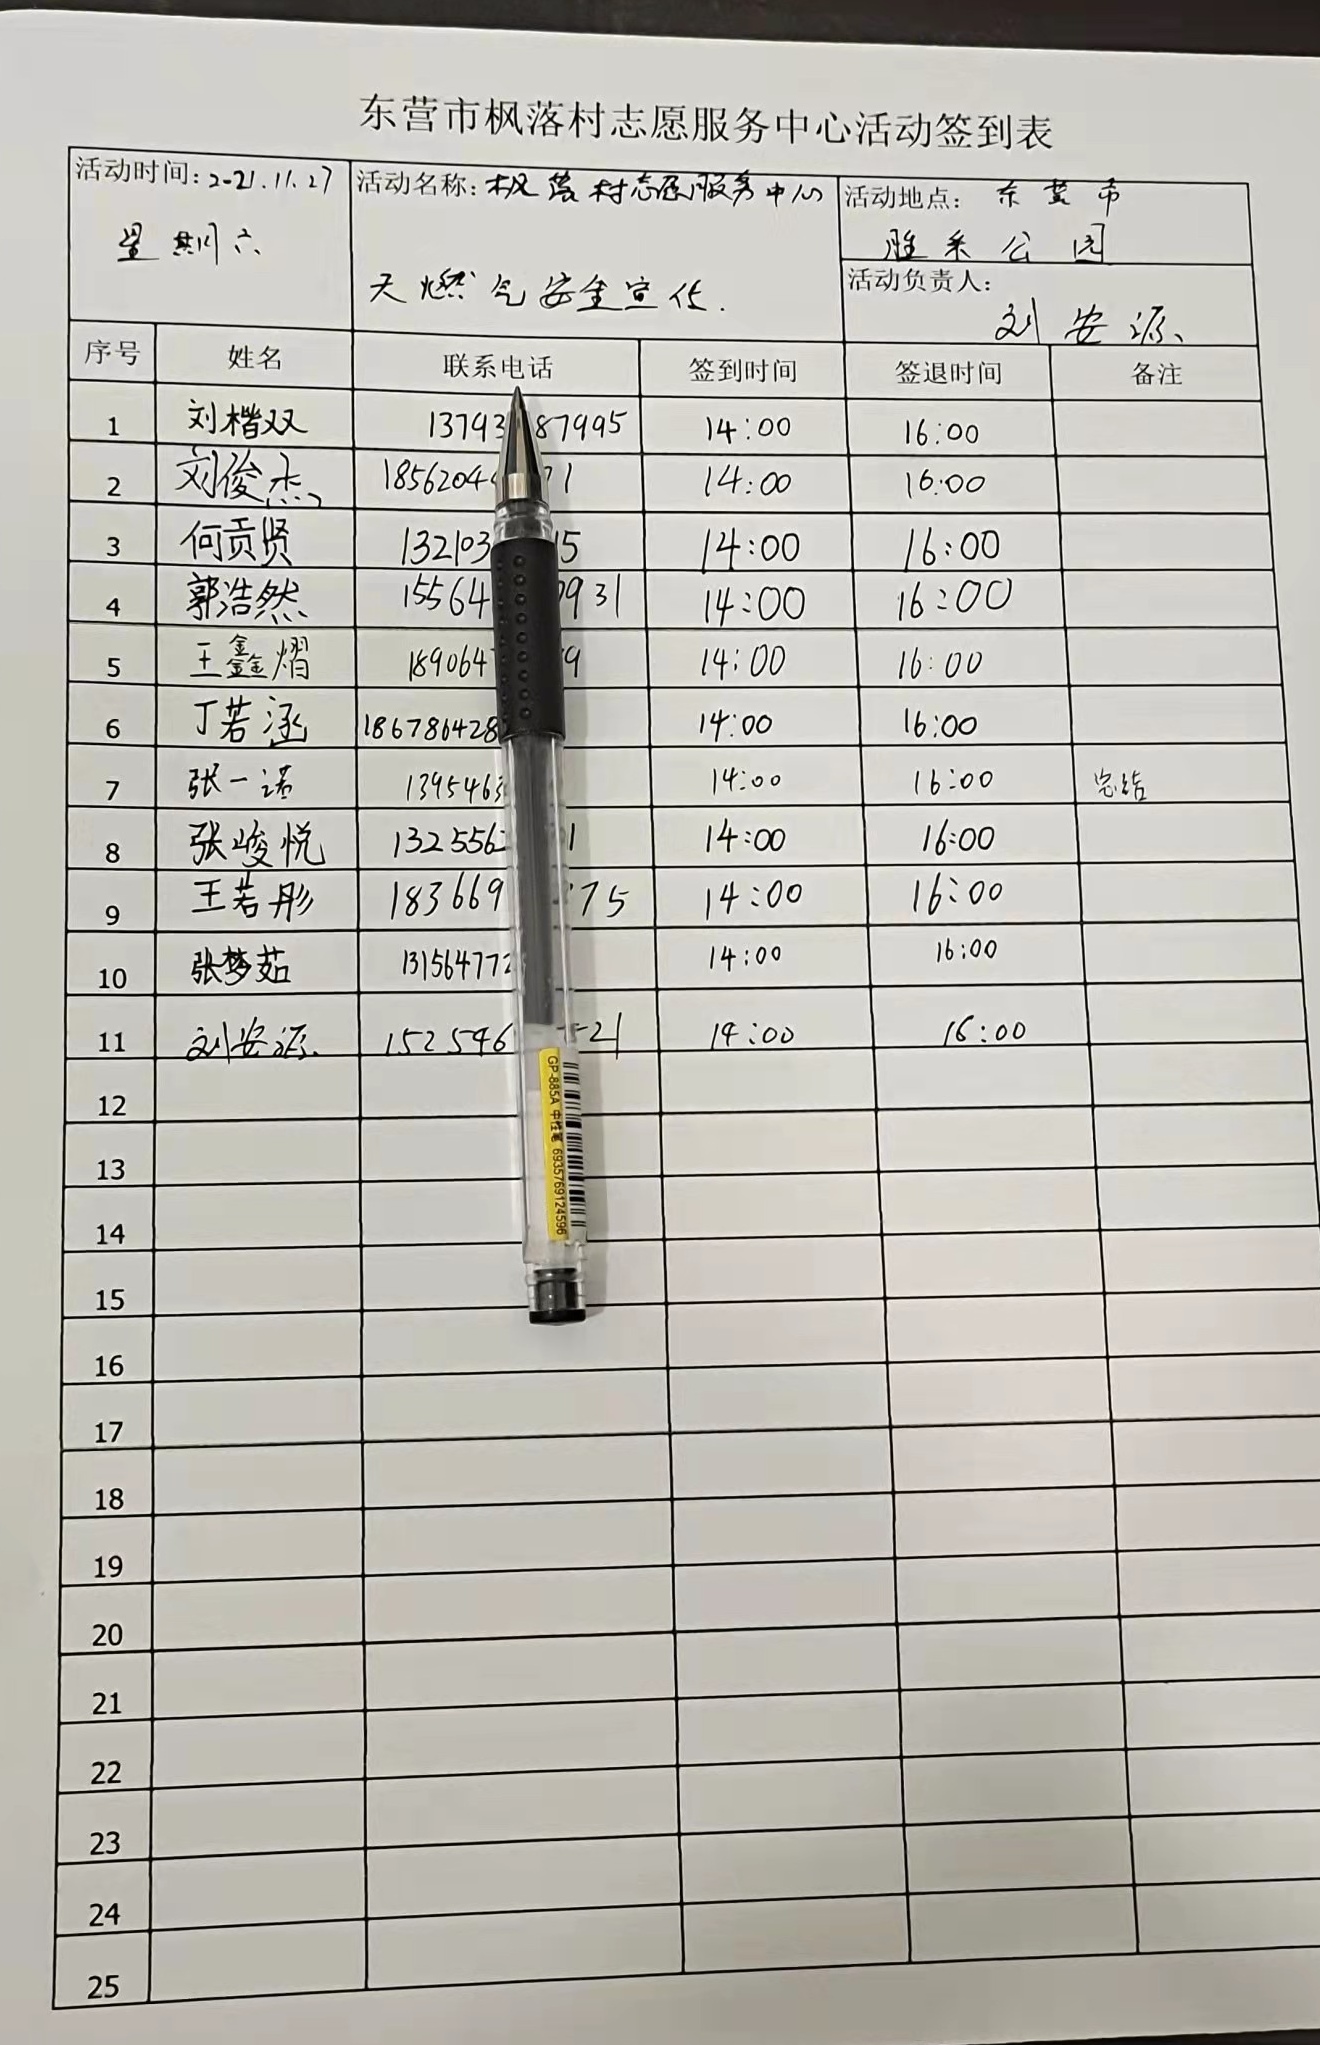 东营市枫落村志愿服务中心活动签到表
活动时间:2021.11.27 活动名称:枫落村志愿服务中心 活动地点: 东营市
星期六 天燃气安全宣传. 胜利公园
活动负责人:
刘安源
序号 姓名 联系电话 签到时间 签退时间 备注
1 刘楷双 13793 87995 14:00 16:00
2 刘俊杰 1856204 71 14:00 16:00
3 何贡贤 132103 15 14:00 16:00
4 郭浩然 15564 931 14:00 16:00
5 王鑫熠 189064 9 14:00 16:00
6 丁若涵 186786428 14:00 16:00
7 张一诺 1395463 14:00 16:00 完结
8 张峻悦 1325562 1 14:00 16:00
9 王若彤 183669 75 14:00 16:00
10 张梦茹 131564772 14:00 16:00
11 刘安源 1525546 21 14:00 16:00
12
13
14
15
16
17
18
19
20
21
22
23
24
25
GP-885A 中性笔 6935769124596